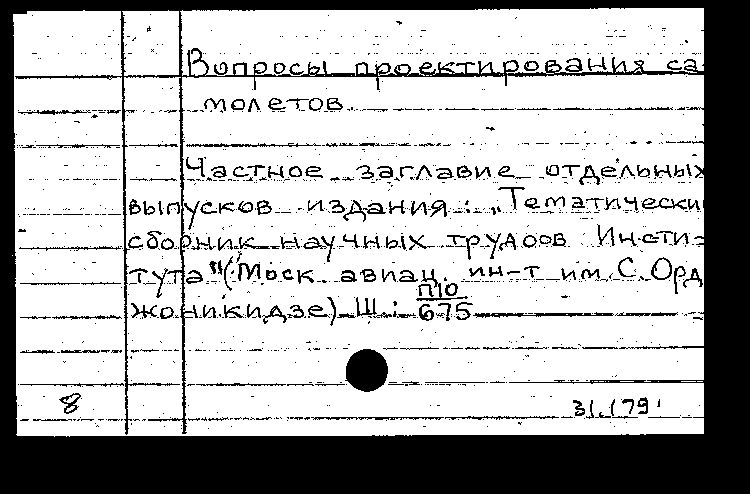 Вопросы проектирования са-
молетов.
Частное заглавие отдельных
выпусков издания: „Тематический
сборник научных трудов Инсти-
тута" (Моск. авиац. ин-т им. С. Орд
жоникидзе) Ш: П10
675
8 31.179